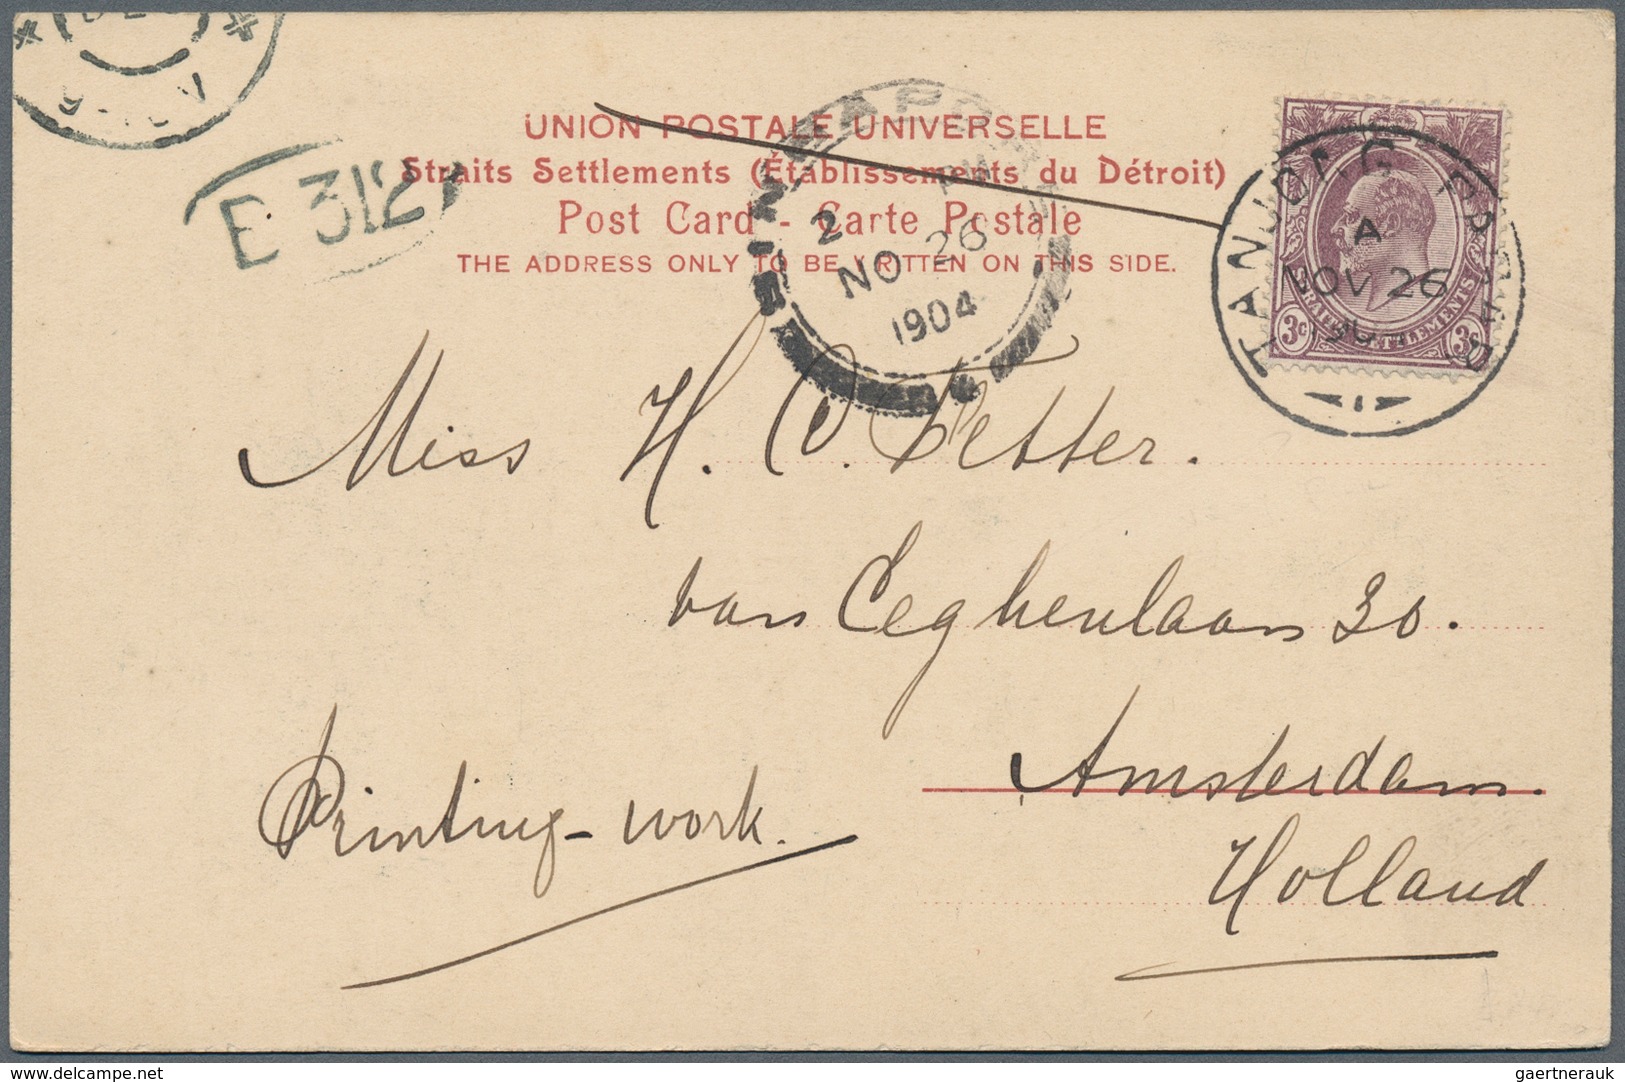 UNION POSTALE UNIVERSELLE
Straits Settlements (Établissements du Détroit)
Post Card - Carte Postale
THE ADDRESS ONLY TO BE WRITTEN ON THIS SIDE.
E 312
SINGAPORE
2 PM
NO 26
1904
TANJONG PAGAR
A
NOV 26
190
3c STRAITS SETTLEMENTS 3c
Miss H. O. Vetter.
van Eeghenlaan 30.
Amsterdam.
Holland
Printing-work.
www.delcampe.net
gaertnerauk